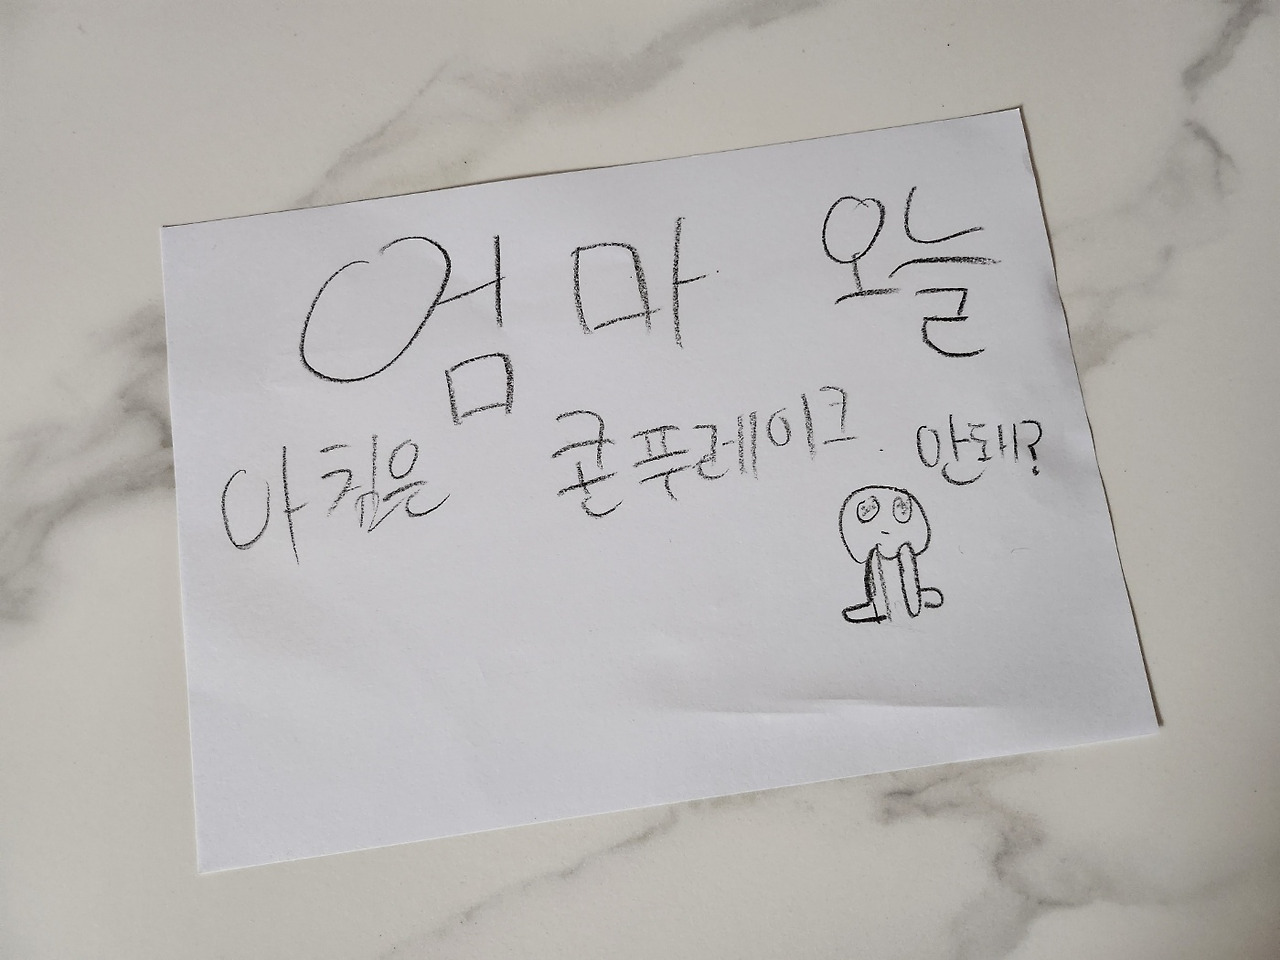 엄마 오늘
아침은 콘푸레이크 안돼?